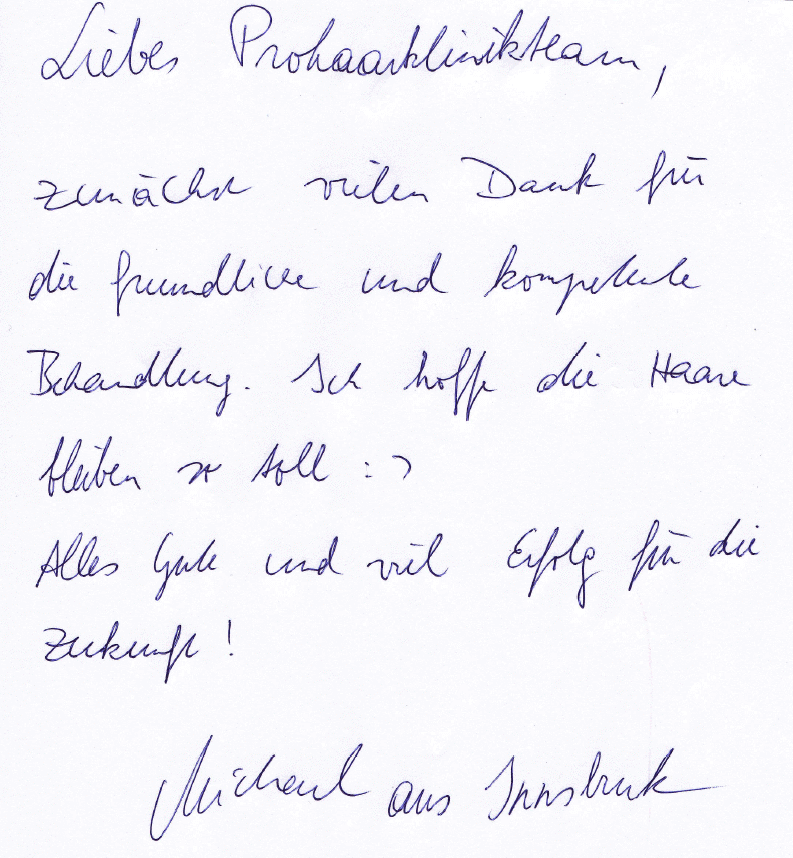 Liebes Prohaarklinikteam,
zunächst vielen Dank für
die freundliche und kompetente
Behandlung. Ich hoffe die Haare
bleiben so toll :)
Alles Gute und viel Erfolg für die
Zukunft!
Michael aus Innsbruck